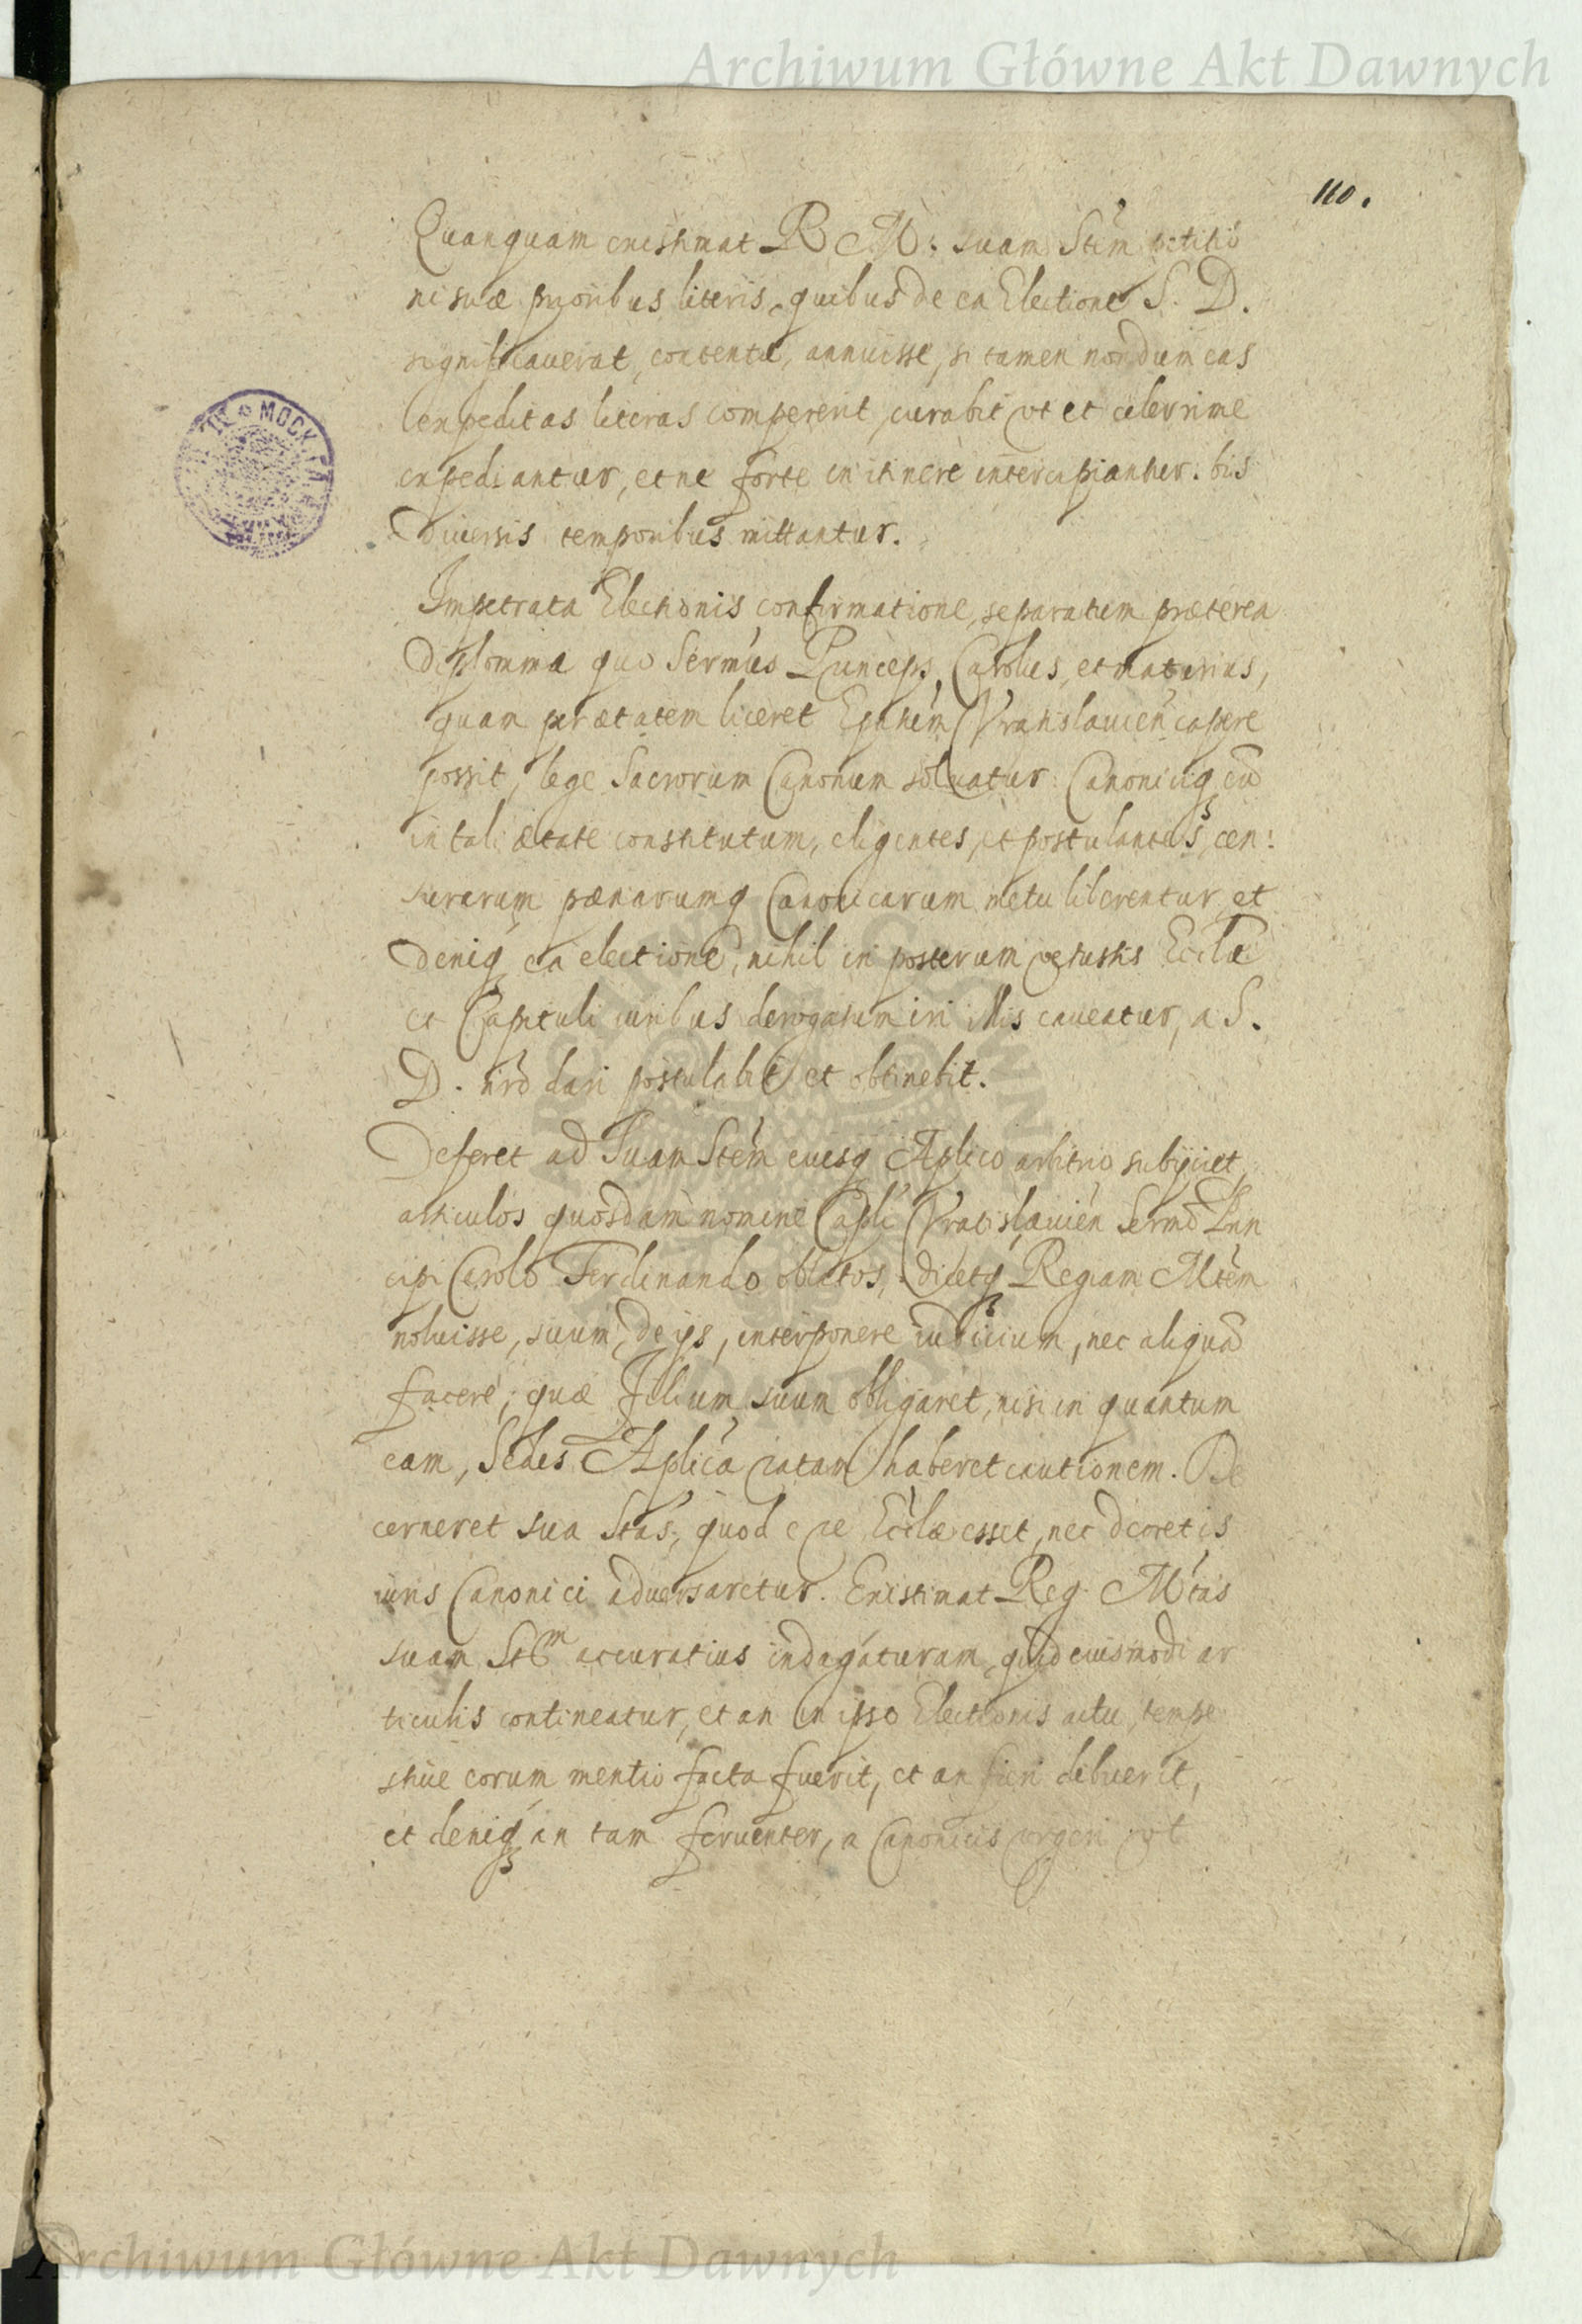 Archiwum Główne Akt Dawnych
110.
Quanquam existimat R M: suam Stem petitio
ni suæ prioribus literis, quibus de ea Electione S. D.
significauerat, contentæ, annuisse, si tamen nondum eas
expeditas literas compererit, curabit vt et celerrime
expediantur, et ne forte in itinere intercipiantur. bis
diuersis temporibus mittantur.
Impetrata Electionis confirmatione, separatum præterea
diplomma quo Sermus Princeps, Carolus, et maturius,
quam per ætatem liceret Epatum Vratislauien capere
possit, lege Sacrorum Canonum soluatur. Canoniciq eū
in tali ætate constitutum, eligentes, et postulantes, cen:
surarum pænarumq Canonicarum metu liberentur et
deniq ea electione, nihil in posterum vetustis Eccłæ
et Capituli iuribus derogatum iri illis caueatur, a S.
D. nrō dari postulabit et obtinebit.
Deferet ad Suam Stem euiusq Aplico arbitrio subijciet,
articulos quosdam nomine Capli Vratislauien Sermo Prin
cipi Carolo Ferdinando oblatos, dicetq Regiam Mtem
noluisse, suum, de ijs, interponere iudicium, nec aliquā
facere, quæ Filium suum obligaret, nisi in quantum
eam, Sedes Aplica ratam haberet cautionem. De
cerneret sua Stas, quod e re Eccłæ esset, nec decretis
iuris Canonici aduersaretur. Existimat Reg. Mtas
suam Stem accuratius indagaturam, quid eiusmodi ar
ticulis contineatur, et an in ipso Electionis actu, tempe
stiue eorum mentio facta fuerit, et an fieri debuerit,
et deniq an tam feruenter, a Canonicis vrgeri vt
МОСК
Archiwum Główne Akt Dawnych